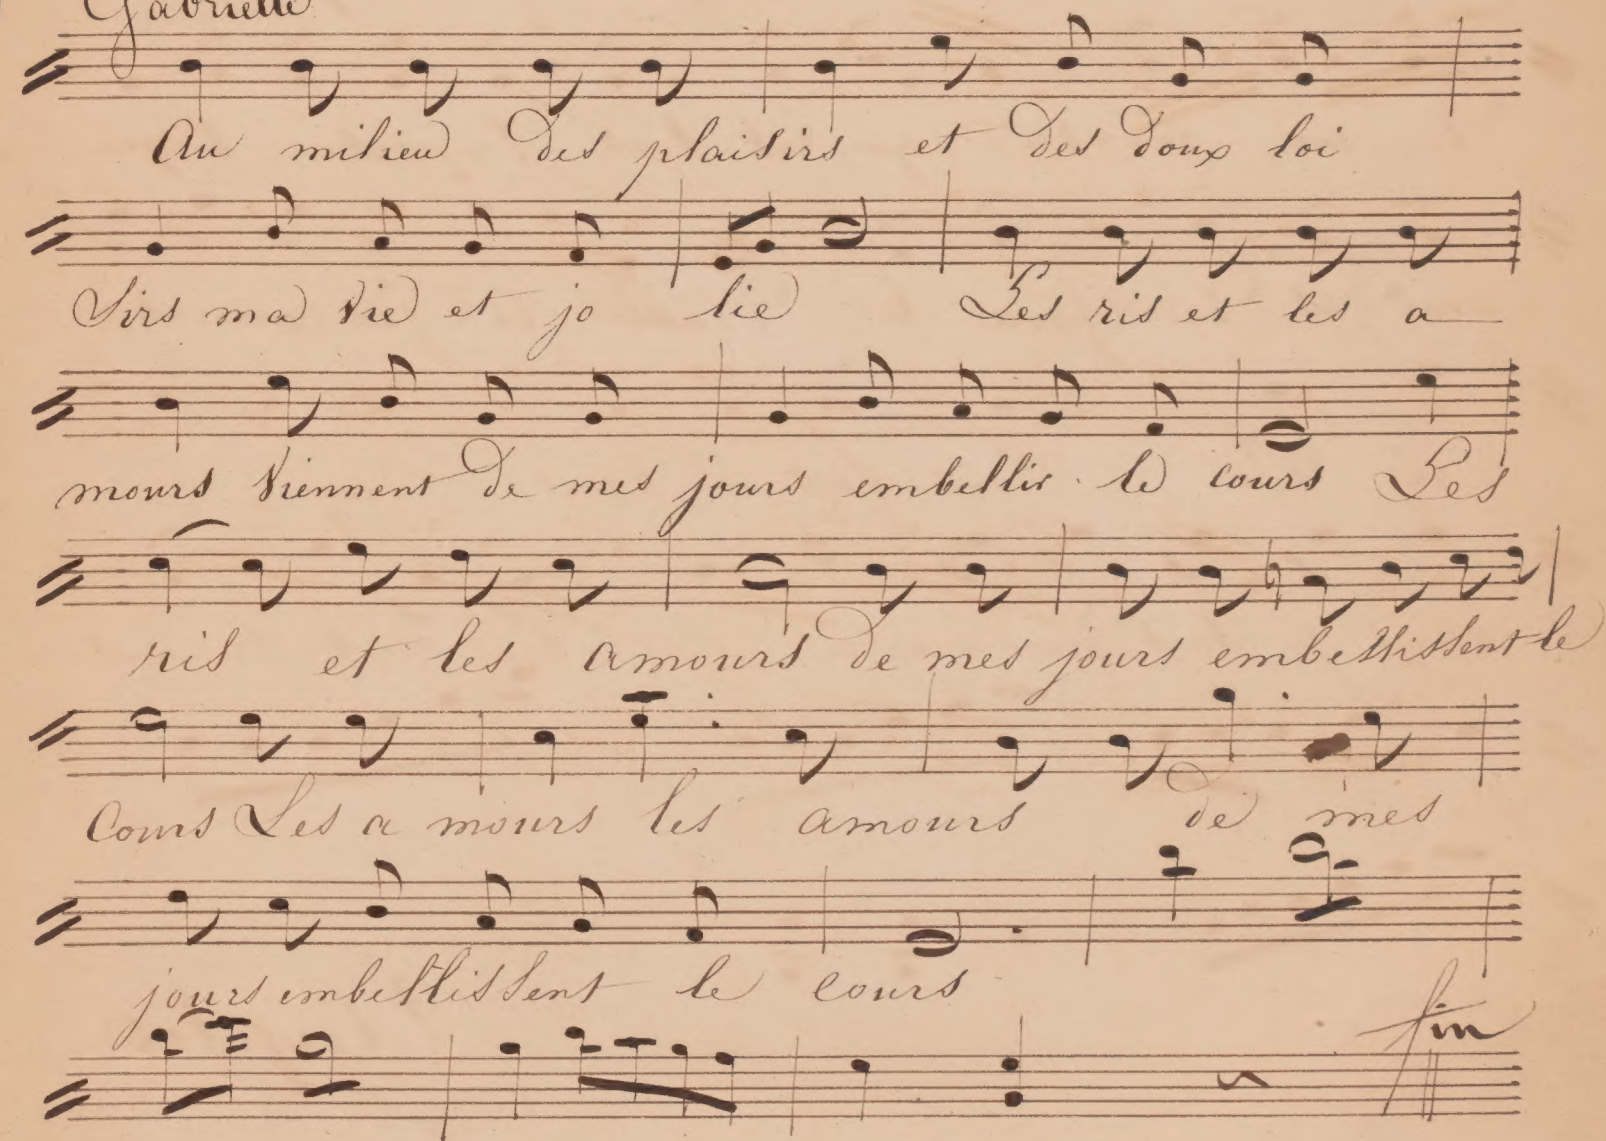 Gabrielle
Au milieu des plaisirs et des doux loi
sirs ma vie et jo lie Les ris et les a
mours viennent de mes jours embellir le cours Les
ris et les amours de mes jours embellissent le
cours Les a mours les amours de mes
jours embellissent le cours
fin